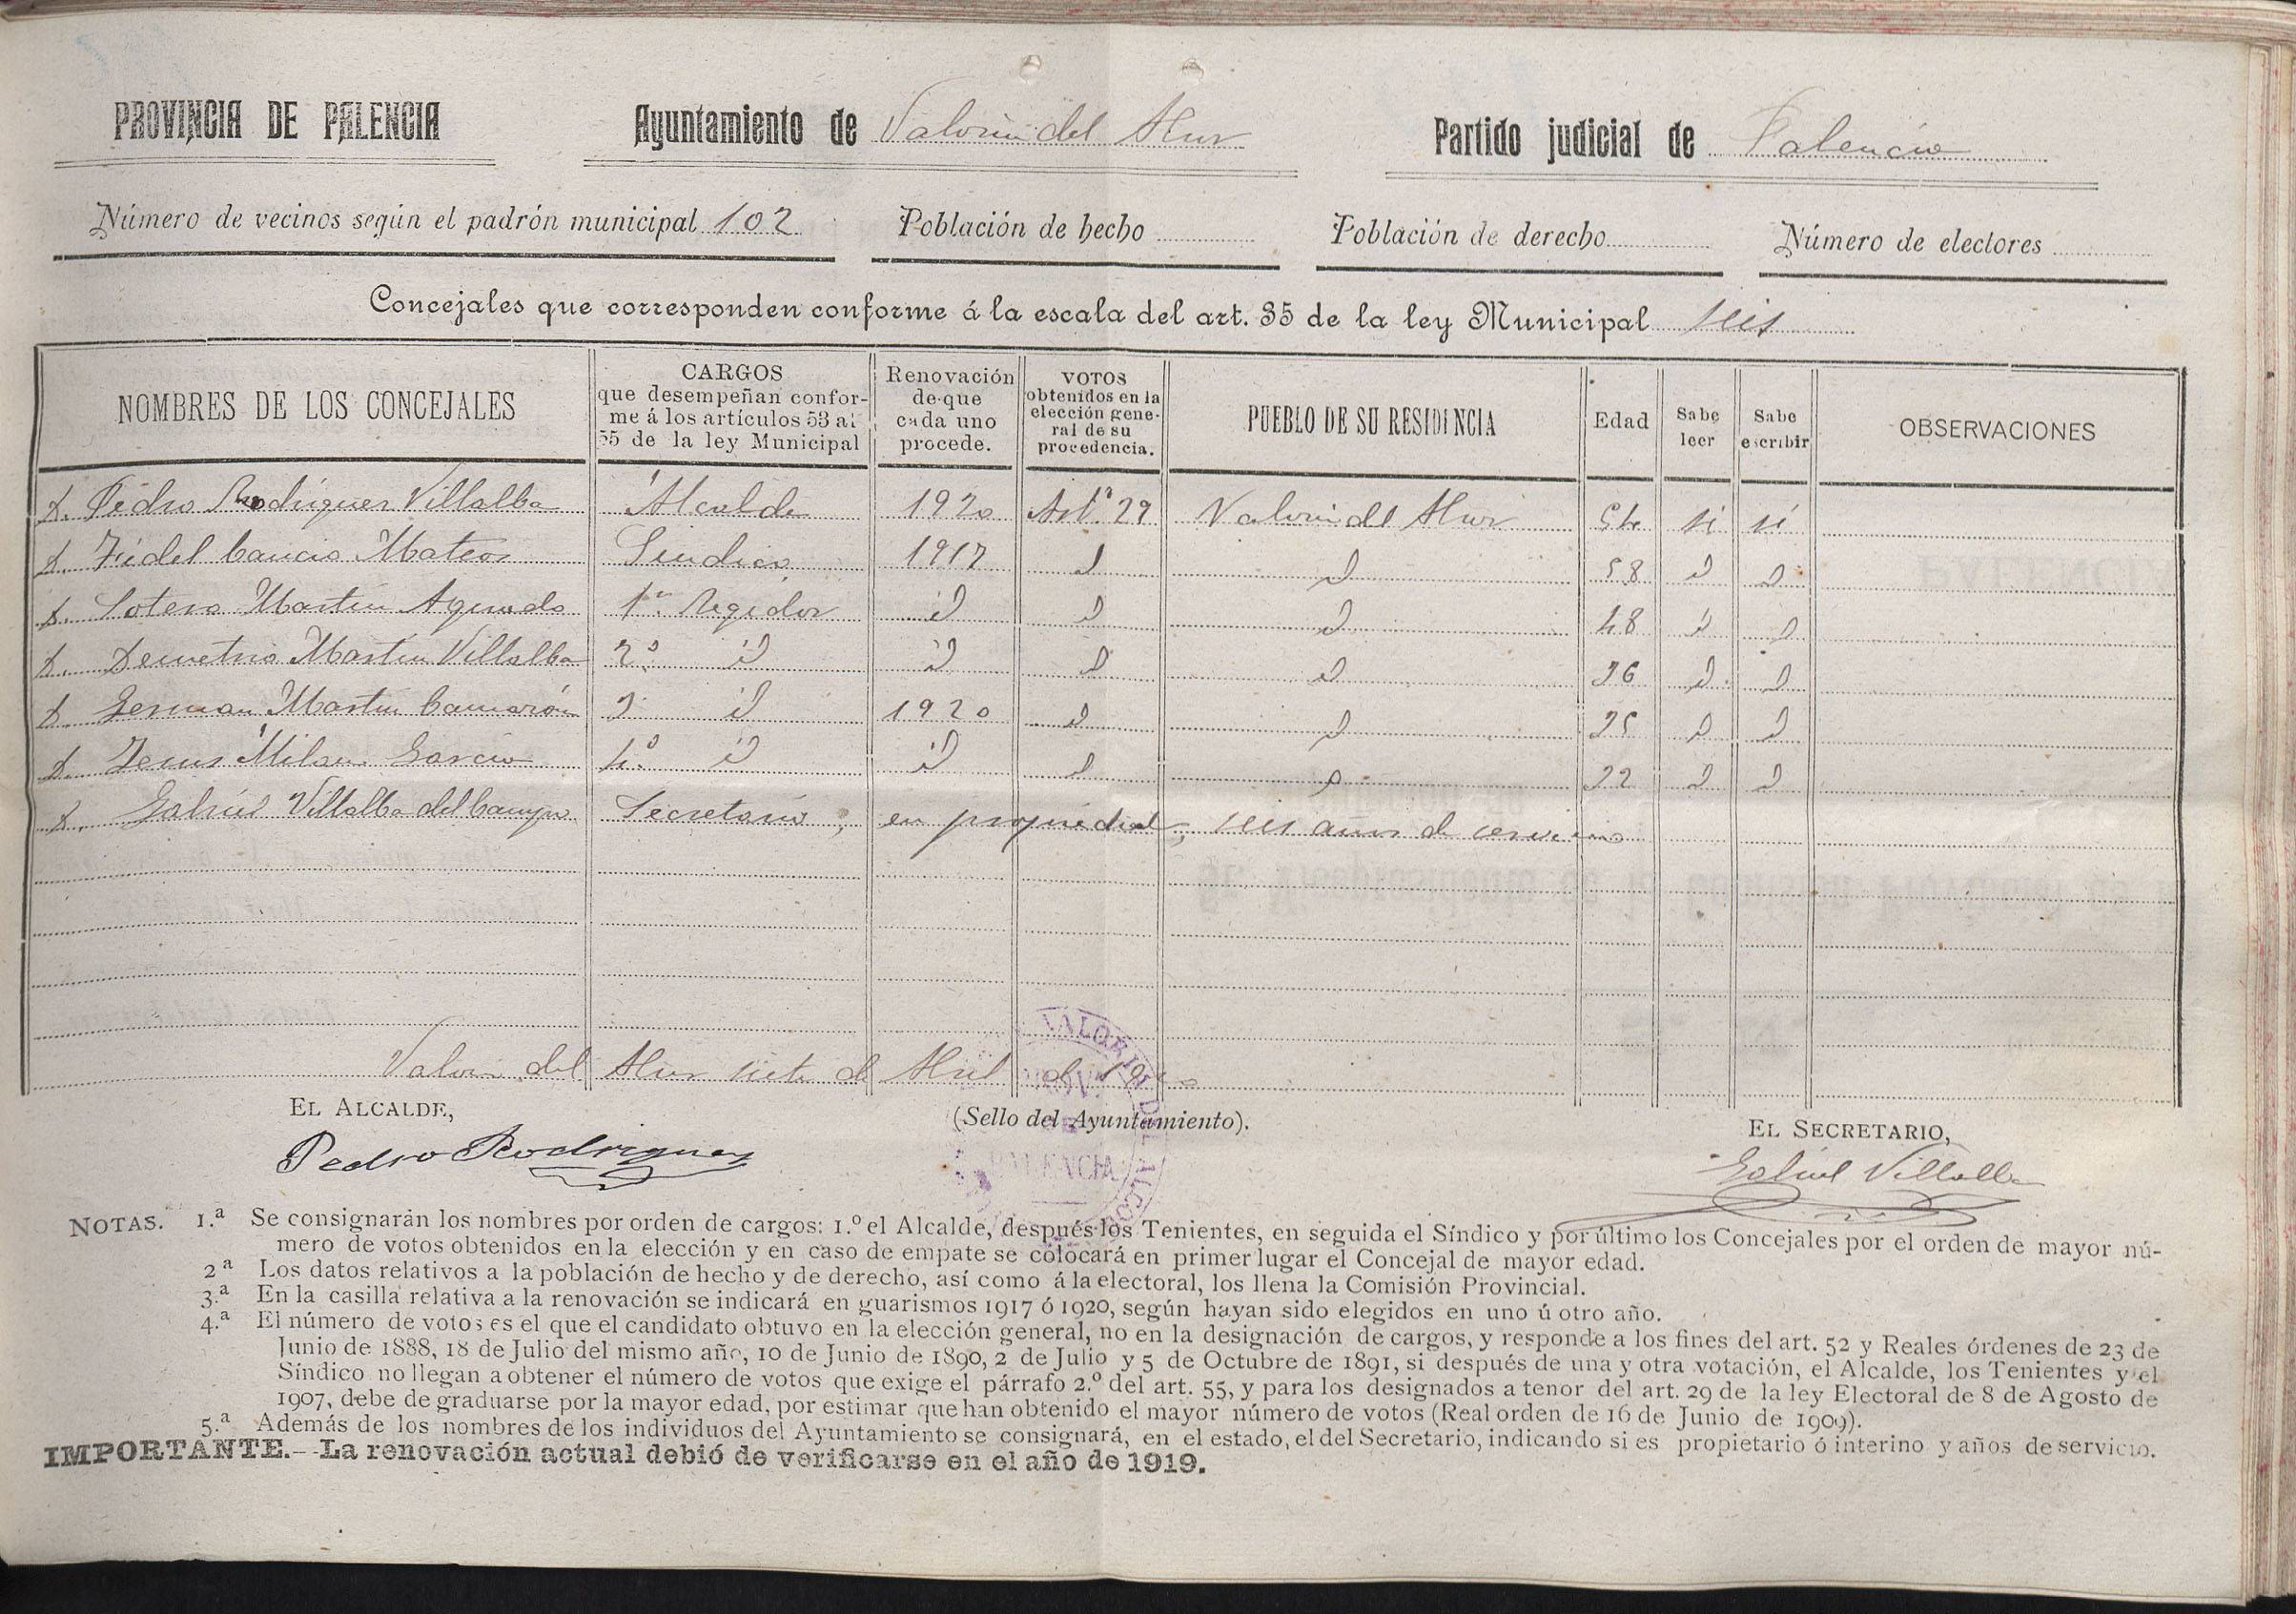 PROVINCIA DE PALENCIA Ayuntamiento de Valoria del Alcor Partido judicial de Palencia
Número de vecinos según el padrón municipal 102 Población de hecho Población de derecho Número de electores
Concejales que corresponden conforme á la escala del art. 35 de la ley Municipal seis
NOMBRES DE LOS CONCEJALES
CARGOS
que desempeñan confor-
me á los artículos 53 al
55 de la ley Municipal
Renovación
de que
cada uno
procede.
VOTOS
obtenidos en la
elección gene-
ral de su
procedencia.
PUEBLO DE SU RESIDENCIA
Edad
Sabe
leer
Sabe
escribir
OBSERVACIONES
D. Pedro Rodriguez Villalba Alcalde 1920 Artº 29 Valoria del Alcor 54 si sí
D. Fidel Mateos Sindico 1917 id id 58 id id
D. Sotero Martin Aguado 1er Regidor id id id 48 id id
D. Demetrio Martin Villalba 2º id id id id 36 id id
D. German Martin Camarón 3 id 1920 id id 35 id id
D. Jesus Milan Garcia 4º id id id id 32 id id
D. Gabriel Villalba del Campo Secretario, en propiedad, seis años de servicio
Valoria del Alcor siete de Abril de 1920
EL ALCALDE, (Sello del Ayuntamiento). EL SECRETARIO,
Pedro Rodriguez Gabriel Villalba
NOTAS. 1.ª Se consignarán los nombres por orden de cargos: 1.º el Alcalde, después los Tenientes, en seguida el Síndico y por último los Concejales por el orden de mayor nú-
mero de votos obtenidos en la elección y en caso de empate se colocará en primer lugar el Concejal de mayor edad.
2ª Los datos relativos a la población de hecho y de derecho, así como á la electoral, los llena la Comisión Provincial.
3.ª En la casilla relativa a la renovación se indicará en guarismos 1917 ó 1920, según hayan sido elegidos en uno ú otro año.
4.ª El número de votos es el que el candidato obtuvo en la elección general, no en la designación de cargos, y responde a los fines del art. 52 y Reales órdenes de 23 de
Junio de 1888, 18 de Julio del mismo año, 10 de Junio de 1890, 2 de Julio y 5 de Octubre de 1891, si después de una y otra votación, el Alcalde, los Tenientes y el
Síndico no llegan a obtener el número de votos que exige el párrafo 2.º del art. 55, y para los designados a tenor del art. 29 de la ley Electoral de 8 de Agosto de
1907, debe de graduarse por la mayor edad, por estimar que han obtenido el mayor número de votos (Real orden de 16 de Junio de 1909).
5.ª Además de los nombres de los individuos del Ayuntamiento se consignará, en el estado, el del Secretario, indicando si es propietario ó interino y años de servicio.
IMPORTANTE.—La renovación actual debió de verificarse en el año de 1919.